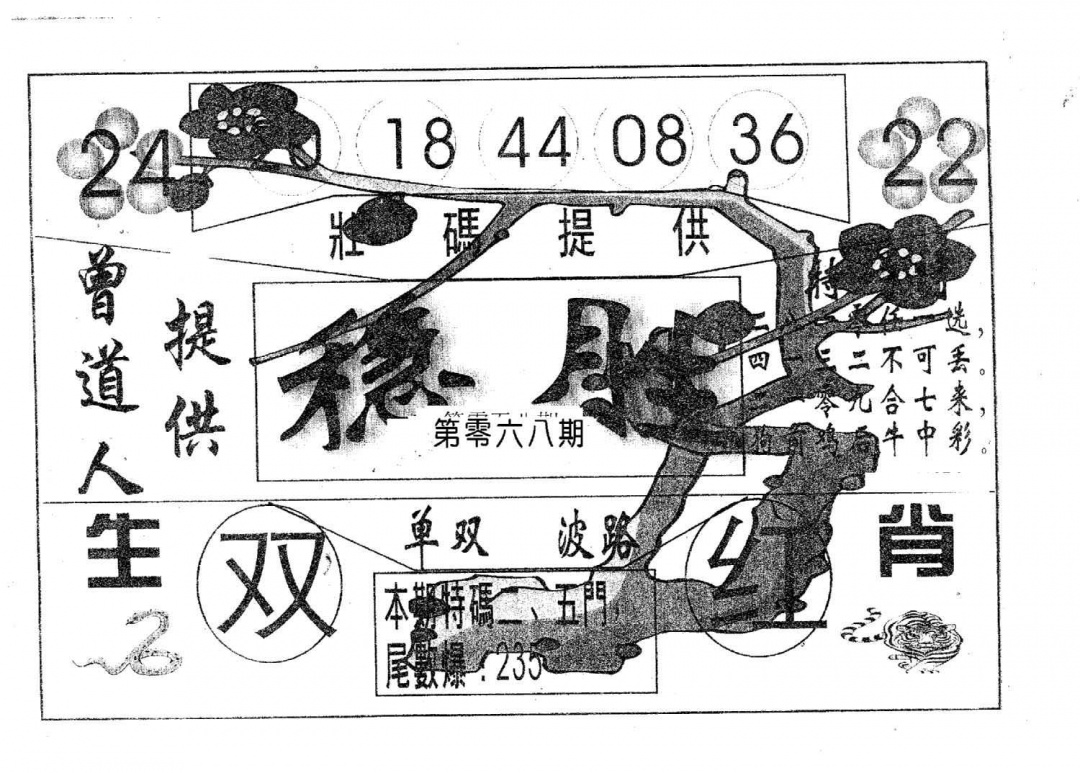 24 18 44 08 36 22
壯碼提供
曾道人
提供
稳胜
第零六八期
选，
四一三二不可丢。
零九合七来，
鸡 牛中彩。
生
双
单双 波路
红
肖
本期特碼二、五門，
尾數爆：235